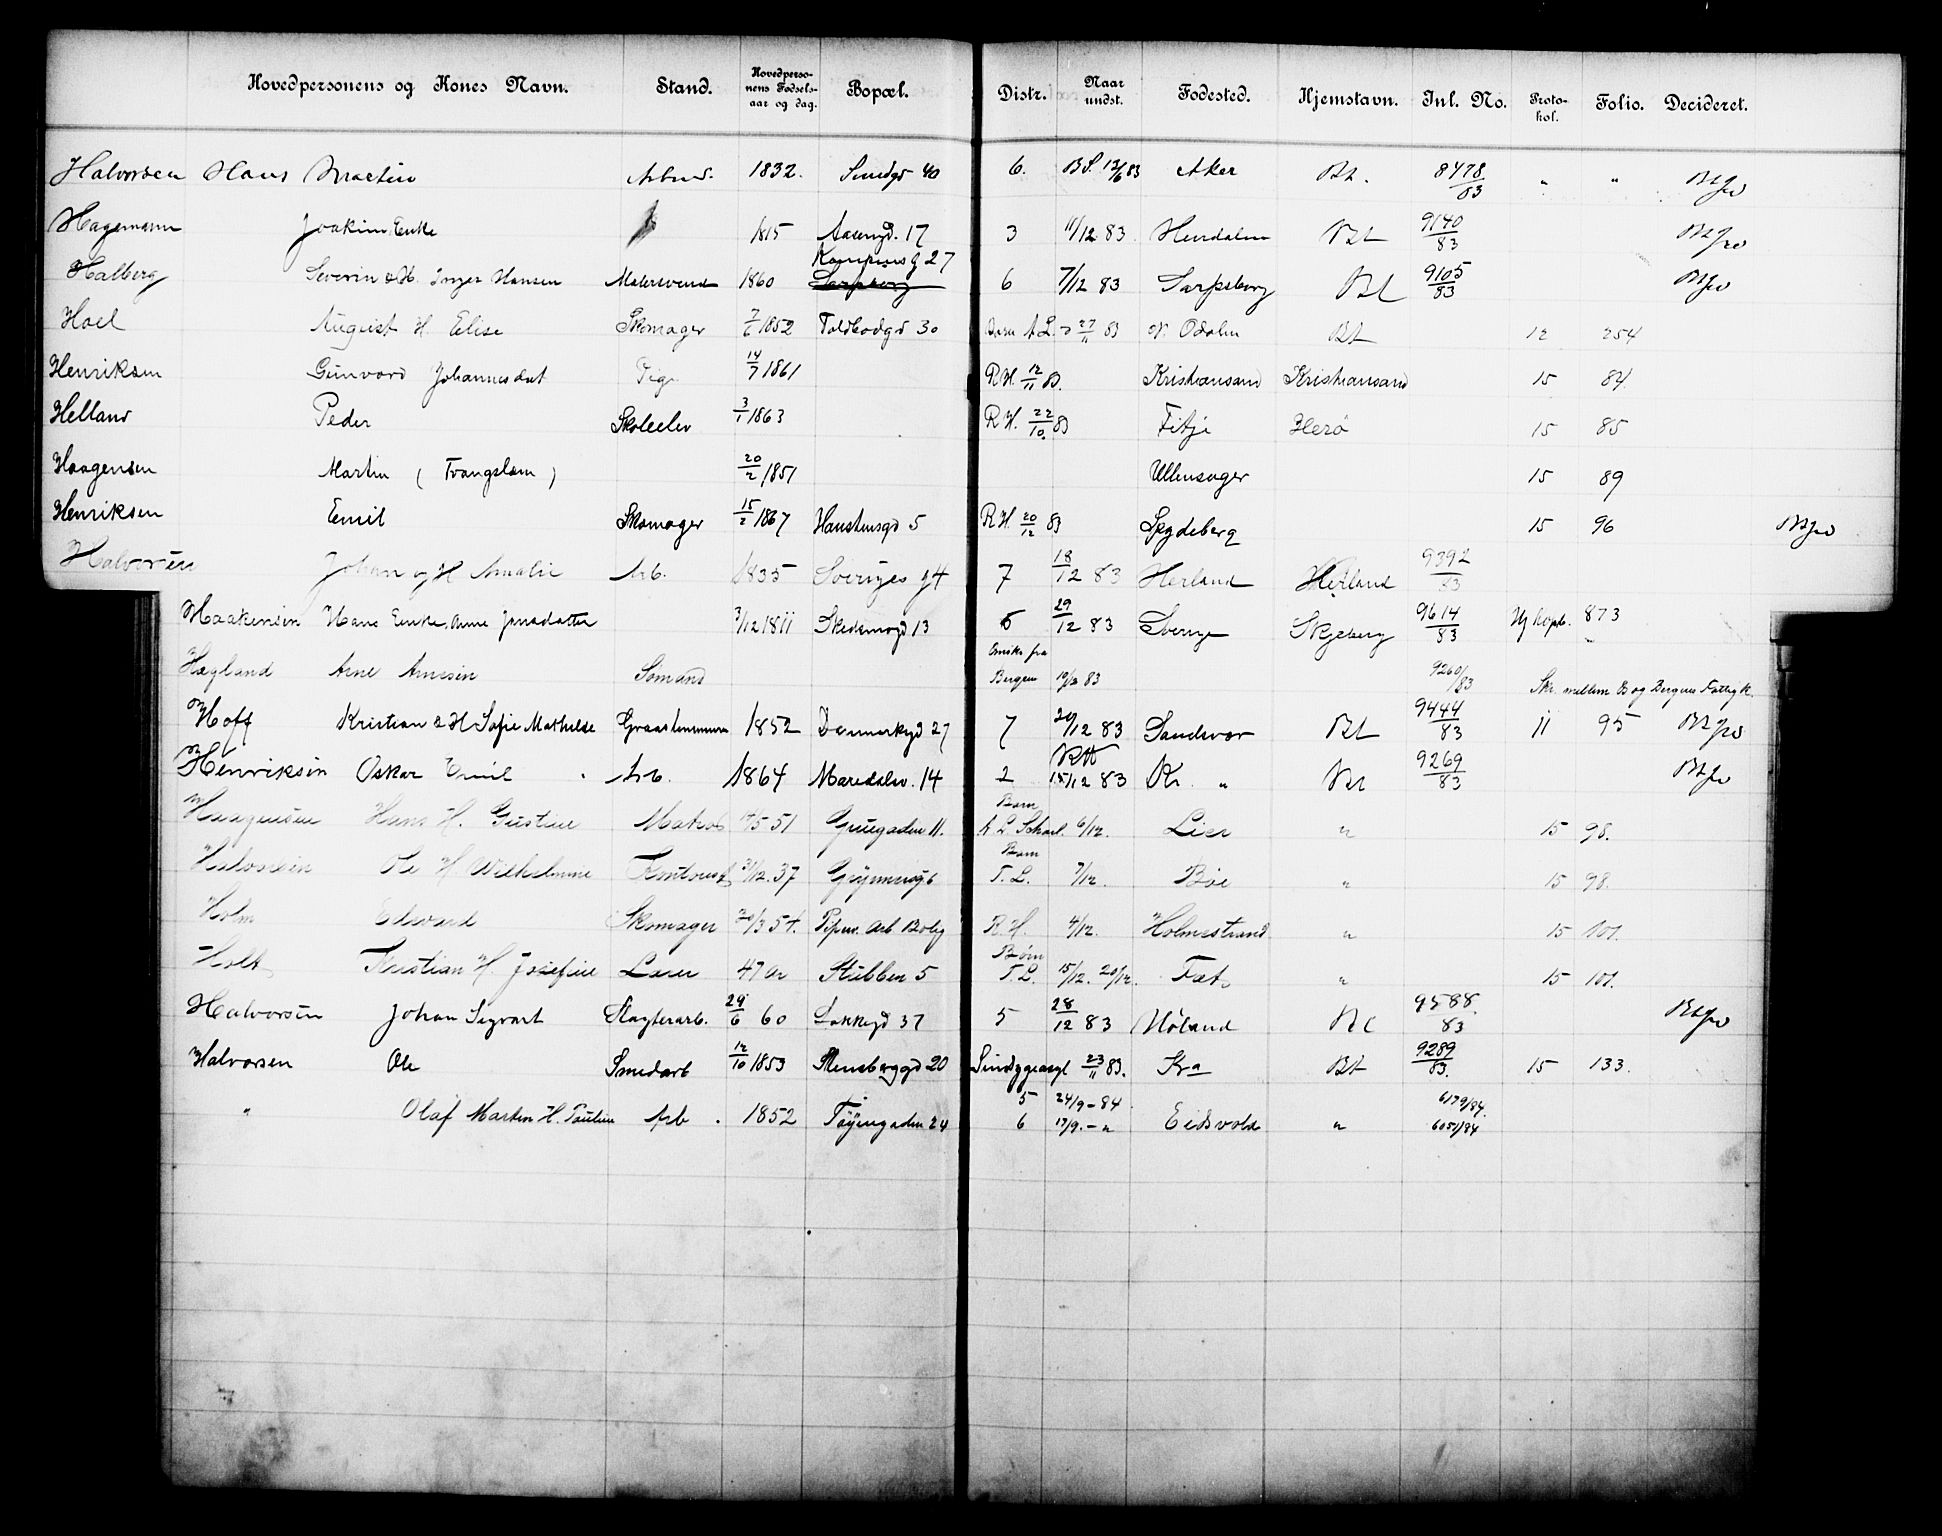 Hovedpersonens og Kones Navn. Stand. Hovedperso-nens Fødsels-aar og dag. Bopæl. Distr. Naar undst. Fødested. Hjemstavn. Jnl. No. Proto-kol. Folio. Decideret.
Halvorsen Hans Martin 1832. Smedgd 40 6. B.S. 12/6 83 Aker Bt. 8478/83 " "
Hagemann Joakim, Enke 1815 Aakergd. 17 3 11/12 83 Bt 9140/83
Kampens g 27
Halberg Severin & H. Inger Hansen Malersvend 1860 Sarpsborg 6 7/12 83 Sarpsborg Bt 9105/83
Hoel August H. Elise Skomager 7/6 1852 Toldbodgd 30 27/11 83 N. Odalen Bt 12 254
Henriksen Gunvord Johannesdat Pige 14/7 1861 R.H. 12/11 83. Kristiansand Kristiansand 15 84
Helland Peder Skoleelev 3/1 1863 R.H. 22/10. 83 Fitje Herø 15 85
Haagensen Martin (Tvangslem) 20/2 1851 Ullensager 15 89
Henriksen Emil Skomager 15/2 1867 Haustensgd 5 R.H. 20/12 83 Spydeberg 15 96
Halvorsen Johan og H Amalie Arb. 1835 Sveriges g 4 7 18/12 83 Herland Herland 9392/83
Haakensen Hans Enke, Anne Jensdatter 3/12 1811 Skedsmogd 13 6 29/12 83 Sverige Skjeberg 9614/83 Hj kopb. 873
Hægland Arne Arnesen Sømand Ønsks fra Bergen 83 9260/83 Skr. mellem B og Bergens Fattigk.
Hoff Kristian & H Sofie Mathilde 1852 Danmarkgd 27 7 20/12 83 Sandsvær Bt 9444/83 11 95
Henriksen Oskar Emil Arb. 1864 Maredalsv. 14 2 RH 15/12 83 Kr. " Bt 9269/83
Haagensen Hans H. Gustine Matros 51 Gruegaden 11. Barn 6/12. Lier " 15 98.
Halvorsen Ole H Wilhelmine 31/12. 37 Barn T. L. 7/12. Bøe " 15 98.
Holm Edvard Skomager 20/3 54. Pipew. Arb Bolig R.H. 4/12. Holmestrand " 15 101.
Holt Kristian H. Josefine 47 Ar Stubben 5 Børn T.L. 15/12. 20/12. Fet " 15 101.
Halvorsen Johan Sigvart Slagterarb. 29/6 60 Lakkegd 37 5 28/12 83 Høland Bt 9588/83
Halvorsen Ole Smedarb 12/10 1853 Stensberggd 20 Sindsygeasyl 23/11 83. Kra Bt 9289/83. 15 133.
" Olaf Martin H. Pauline Arb. 1852 Tøyengaden 24 5 24/9-84 6179/84.
6 17/9.-" Eidsvold " 6051/84